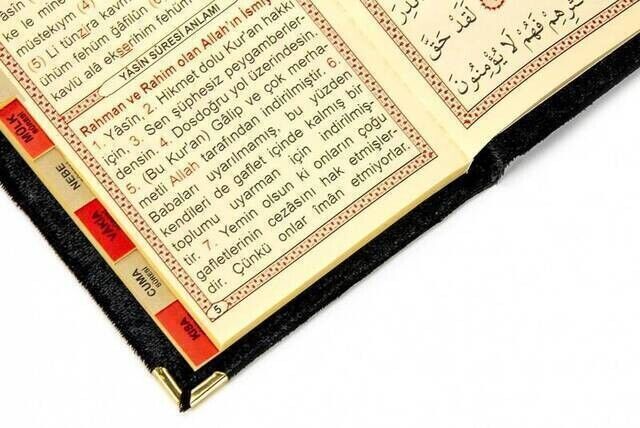 müstekıym (4)
(5) Li tünzira kavm
ühüm fehüm ğâfilûn
kavlü alâ ekserihim fehüm
YÂSİN SÛRESİ ANLAMI
Rahman ve Rahim olan Allah'ın İsmiy
1. Yâsîn. 2. Hikmet dolu Kur'an hakkı
için. 3. Sen şüphesiz peygamberler-
densin. 4. Dosdoğru yol üzerindesin.
5. (Bu Kur'an) Gâlip ve çok merha-
metli Allah tarafından indirilmiştir. 6.
Babaları uyarılmamış, bu yüzden
kendileri de gaflet içinde kalmış bir
toplumu uyarman için indirilmiş-
tir. 7. Yemin olsun ki onların çoğu
gafletlerinin cezâsını hak etmişler-
dir. Çünkü onlar îmân etmiyorlar.
5
لَقَدْ حَقَّ
فَهُمْ لَا يُؤْمِنُونَ
MÜLK
SÛRESİ
NEBE
VÂKIA
CUMA
SÛRESİ
KISA